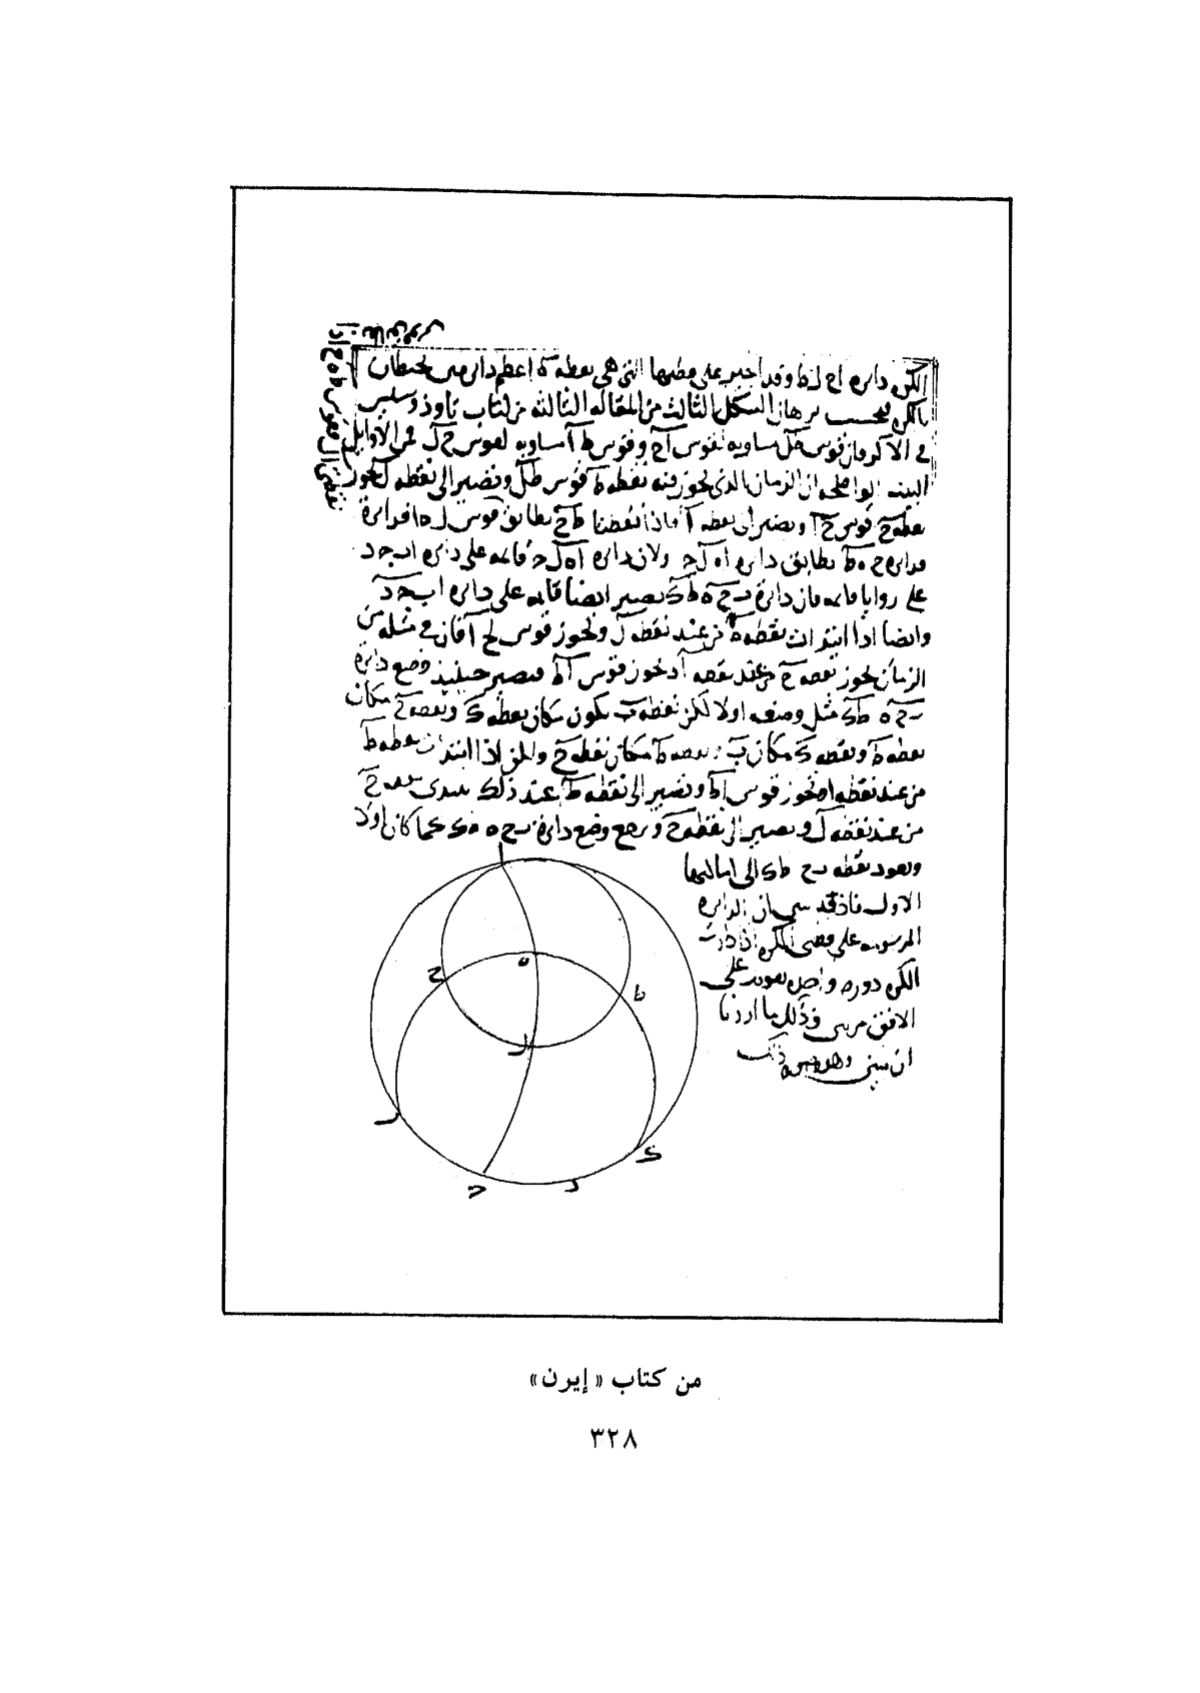 الكره دايره اح ل ط وقد اجيز على قطبها التى هى نقطه ه اعظم دايرتين يحيطان
بالكره فبحسب برهان الشكل الثالث من المقاله الثالثه من كتاب ثاوذوسيوس
فى الاكر فان قوس ط ل مساويه لقوس آح وقوس ط آ مساويه لقوس ح ل فمن الاوايل
البينه الواضحه ان الزمان الذى تجوز فيه نقطه ط قوس ط ل وتصير الى نقطه ل تجوز
نقطه ح قوس ح آ وتصير الى نقطه آ فاذا نقطتا ط ح تطابق قوس ل ه ا فدايرة
فدايره ح ه ط تطابق دايره آه ل ج ولان دايره اه ل ج قايمه على دايره اب ج د
على زوايا قايمه فان دايرة ب ح ه ط ك تصير ايضا قايمه على دايره اب ج د
وايضا اذا ابتدات نقطه ط من عند نقطه ل وتجوز قوس ل ح آ فان فى مثله من
الزمان تجوز نقطه ح من عند نقطه آ وتجوز قوس آ ط فيصير حينيذ وضع دايره
ب ح ه ط ك مثل وضعه اولا لكن نقطه ب يكون مكان نقطه ك ونقطه ح مكان
نقطه ط ونقطه ك مكان ب ونقطه ط مكان نقطه ح ولكن اذا ابتدات نقطه ط
من عند نقطه ا وتجوز قوس ا ط وتصير الى نقطه ط عند ذلك تبتدى نقطه ح
من عند نقطه ل وتصير الى نقطه ح ويرجع وضع دايرة ب ح ه ط ك كما كان اولا
وتعود نقطه ب ح ط ك الى اماكنها
الاول فاذ قد تبين ان الدايره
المرسومه على قطبى الكره اذا دارت
الكره دوره واحده تقوم على
الافق مرتين وذلك ما اردنا
ان نبين وهذه صورة ذلك
ا
ه
ح
ط
ل
ب
ك
ج
د
من كتاب « إيرن»
٣٢٨